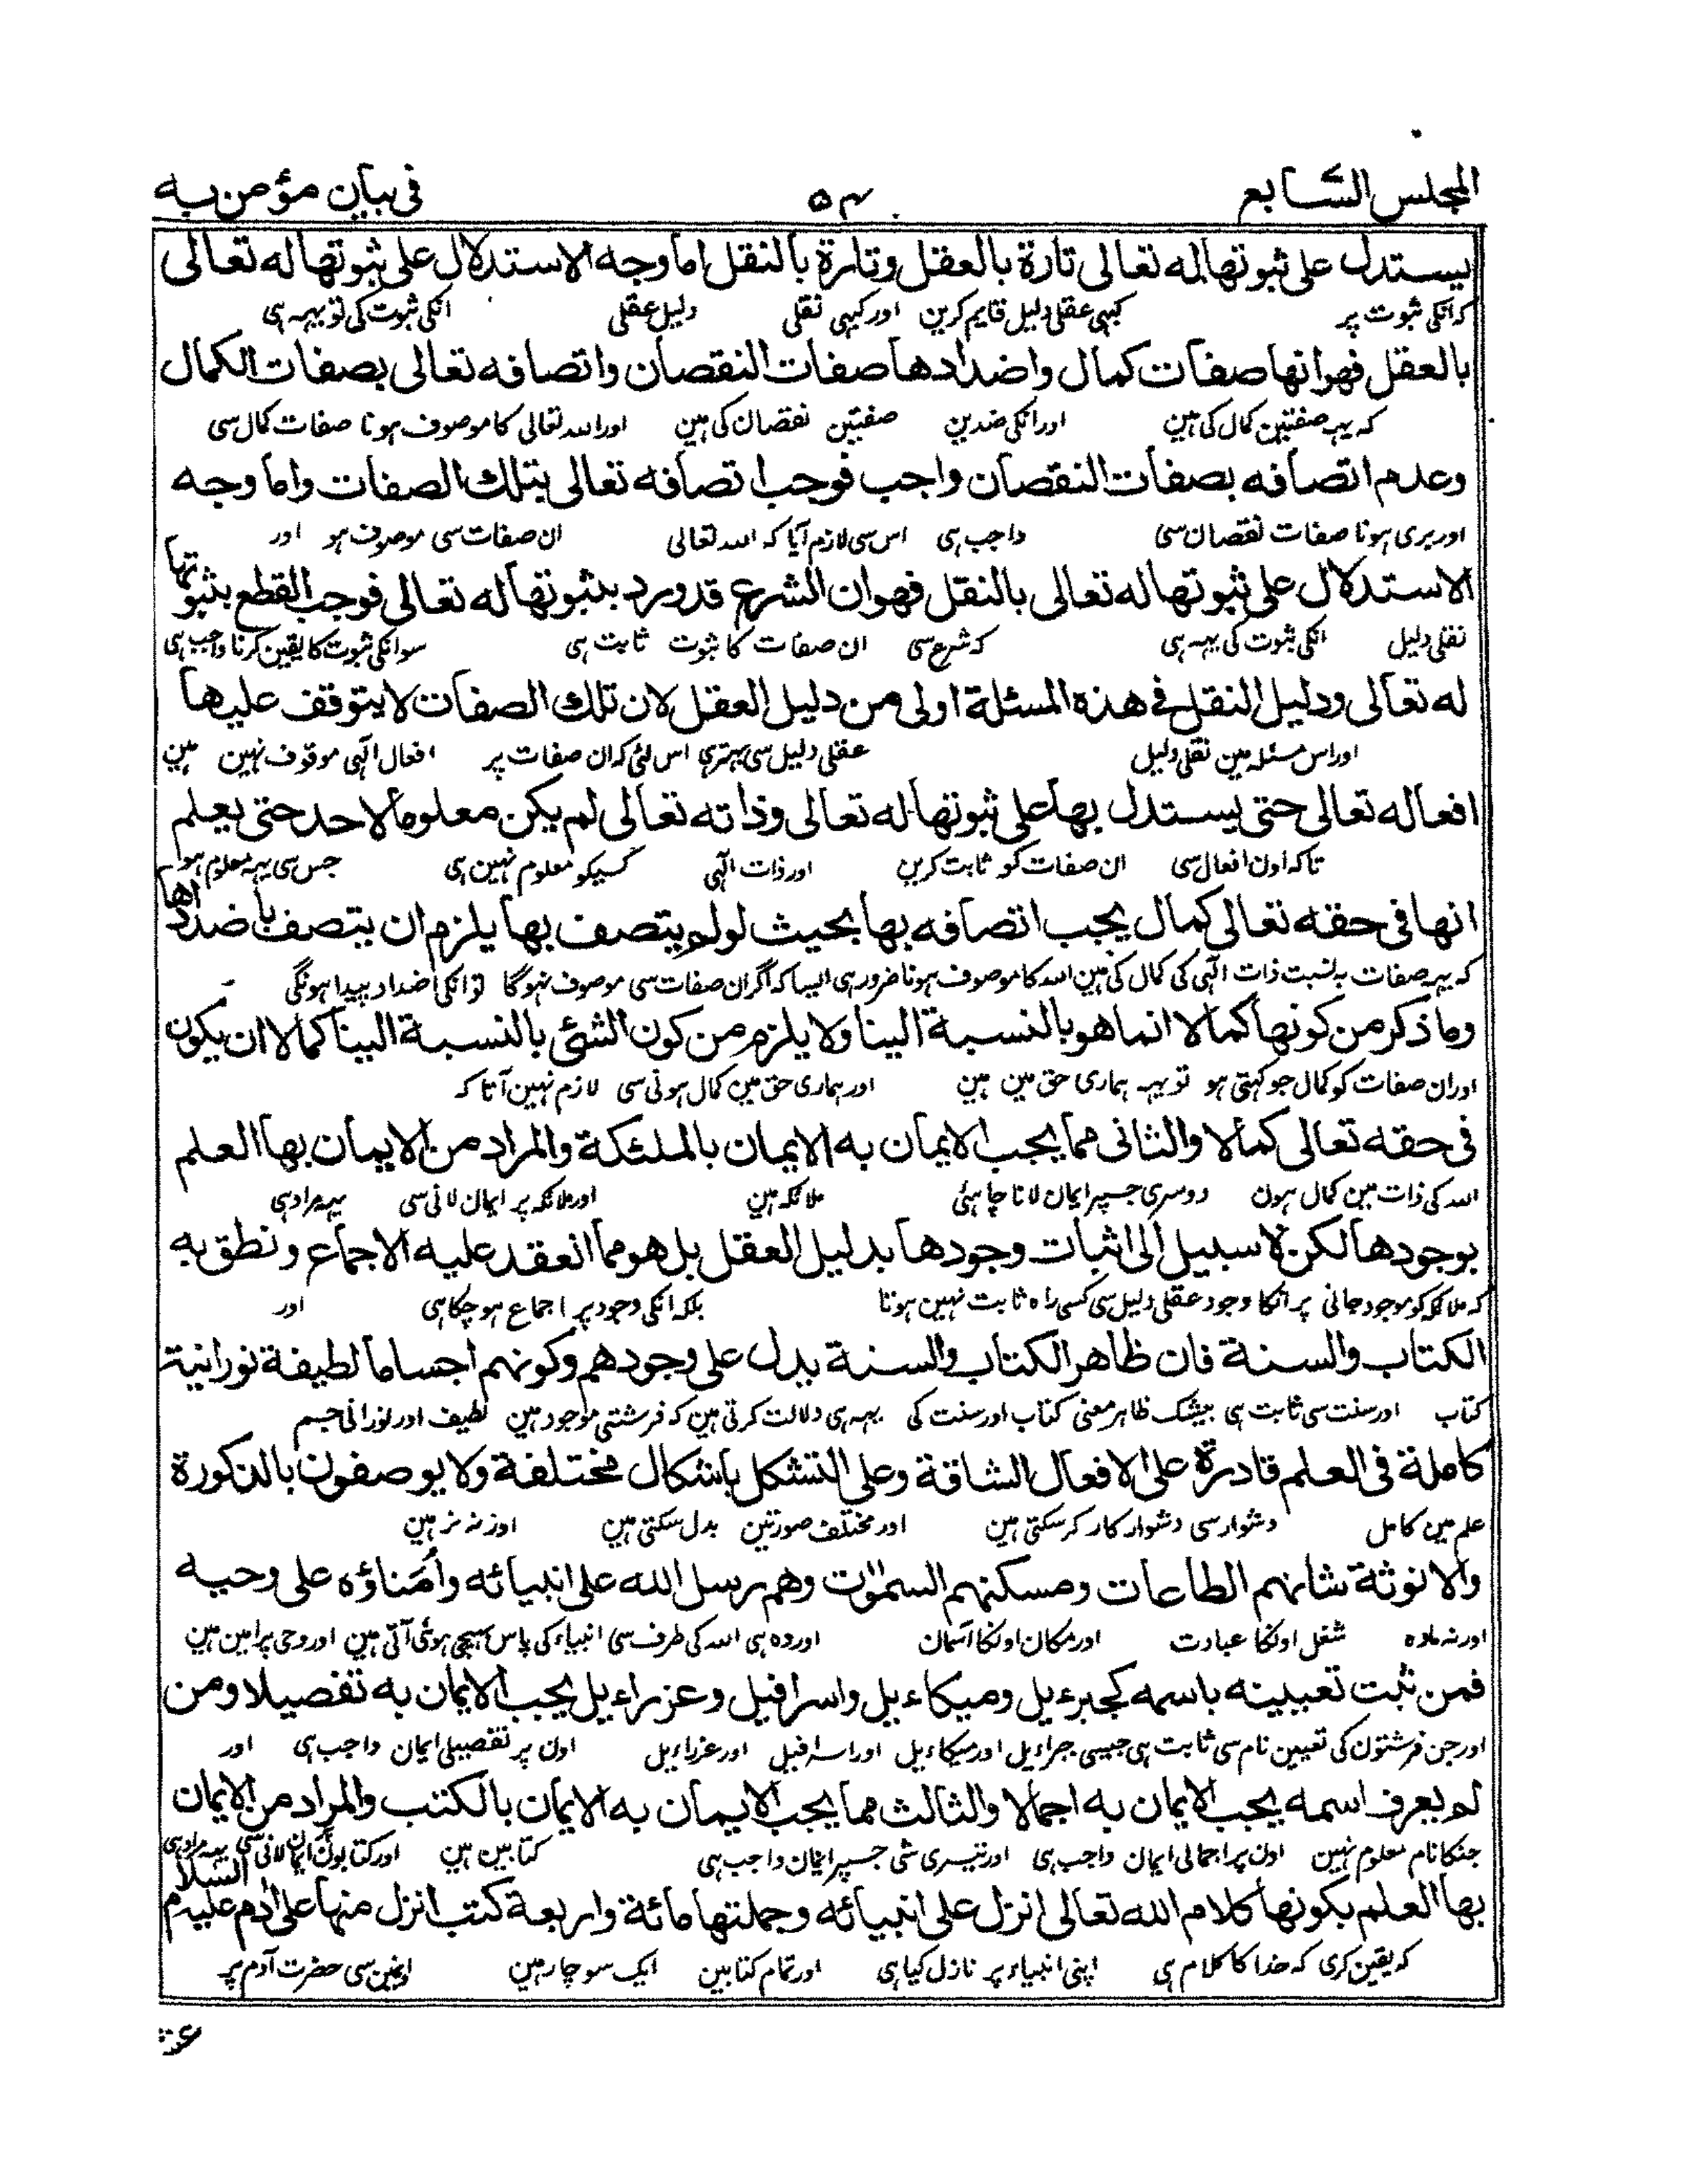 المجلس السابع
۵۴
فی بیان مؤمن به
یستدل علی ثبوتها له تعالی تارة بالعقل وتارة بالنقل اما وجه الاستدلال علی ثبوتها له تعالی
که انکی ثبوت پر کبهی عقلی دلیل قایم کرین اور کبهی نقلی دلیل عقلی انکی ثبوت کی تو یهه هی
بالعقل فهو انها صفات کمال واضدادها صفات النقصان واتصافه تعالی بصفات الکمال
که یهه صفتین کمال کی هین اور انکی ضدین صفتین نقصان کی هین اور الله تعالی کا موصوف هونا صفات کمال سی
وعدم اتصافه بصفات النقصان واجب فوجب اتصافه تعالی بتلك الصفات واما وجه
اور بری هونا صفات نقصان سی واجب هی اس سی لازم آیا که الله تعالی ان صفات سی موصوف هو اور
الاستدلال علی ثبوتها له تعالی بالنقل فهو ان الشرع قد ورد بثبوتها له تعالی فوجب القطع بثبوتها
نقلی دلیل انکی ثبوت کی یهه هی که شرع سی ان صفات کا ثبوت ثابت هی سو انکی ثبوت کا یقین کرنا واجب هی
له تعالی ودلیل النقل فی هذه المسئلة اولی من دلیل العقل لان تلك الصفات لا یتوقف علیها
اور اس مسئله مین نقلی دلیل عقلی دلیل سی بهتر هی اس لئی که ان صفات پر افعال الٓهی موقوف نهین هین
افعاله تعالی حتی یستدل بها علی ثبوتها له تعالی وذاته تعالی لم یکن معلوما لاحد حتی یعلم
تا که اون افعال سی ان صفات کو ثابت کرین اور ذات الٓهی کسیکو معلوم نهین هی جس سی یهه معلوم هو
انها فی حقه تعالی کمال یجب اتصافه بها بحیث لو لم یتصف بها یلزم ان یتصف باضدادها
که یهه صفات به نسبت ذات الٓهی کی کمال کی هین الله کا موصوف هونا ضرور هی ایسا که اگر ان صفات سی موصوف نهوگا تو انکی اضداد پیدا هونگی
وما ذکر من کونها کمالا انما هو بالنسبة الینا ولا یلزم من کون الشئ بالنسبة الینا کمالا ان یکون
اور ان صفات کو کمال جو کهتی هو تو یهه هماری حق مین هین اور هماری حق مین کمال هونی سی لازم نهین آتا که
فی حقه تعالی کمالا والثانی مما یجب الایمان به الایمان بالملئکة والمراد من الایمان بها العلم
الله کی ذات مین کمال هون دوسری جسپر ایمان لانا چاهئی ملائکه هین اور ملائکه پر ایمان لانی سی یهه مراد هی
بوجودها لکن لا سبیل الی اثبات وجودها بدلیل العقل بل هو مما انعقد علیه الاجماع ونطق به
که ملائکه کو موجود جانی پر انکا وجود عقلی دلیل سی کسی راه ثابت نهین هوتا بلکه انکی وجود پر اجماع هو چکا هی اور
الکتاب والسنة فان ظاهر الکتاب والسنة یدل علی وجودهم وکونهم اجساما لطیفة نورانیة
کتاب اور سنت سی ثابت هی بیشک ظاهر معنی کتاب اور سنت کی یهه هی دلالت کرتی هین که فرشتی موجود هین لطیف اور نورانی جسم
کاملة فی العلم قادرة علی الافعال الشاقة وعلی التشکل باشکال مختلفة ولا یوصفون بالذکورة
علم مین کامل دشوار سی دشوار کار کر سکتی هین اور مختلف صورتین بدل سکتی هین اور نه نر هین
والانوثة شانهم الطاعات ومسکنهم السمٰوٰت وهم رسل الله علی انبیائه وأمناؤه علی وحیه
اور نه ماده شغل اونکا عبادت اور مکان اونکا آسمان اور وه هی الله کی طرف سی انبیاء کی پاس بهیجی هوئی آتی هین اور وحی پر امین هین
فمن ثبت تعیینه باسمه کجبرءیل ومیکاءیل واسرافیل وعزراءیل یجب الایمان به تفصیلا ومن
اور جن فرشتون کی تعیین نام سی ثابت هی جیسی جبراءیل اور میکاءیل اور اسرافیل اور عزراءیل اون پر تفصیلی ایمان واجب هی اور
لم یعرف اسمه یجب الایمان به اجمالا والثالث مما یجب الایمان به الایمان بالکتب والمراد من الایمان
جنکا نام معلوم نهین اون پر اجمالی ایمان واجب هی اور تیسری شی جسپر ایمان واجب هی کتابین هین اور کتابون پر ایمان لانی سی یهه مراد هی
بها العلم بکونها کلام الله تعالی انزل علی انبیائه وجملتها مائة واربعة کتب انزل منها علی اٰدم علیه السلام
که یقین کری که خدا کا کلام هی اپنی انبیاء پر نازل کیا هی اور تمام کتابین ایک سو چار هین اونمین سی حضرت آدم پر